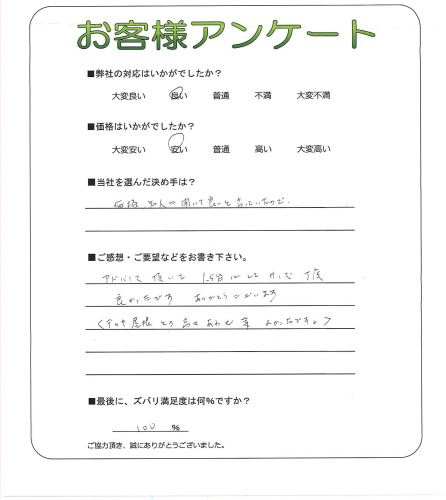 お客様アンケート
■弊社の対応はいかがでしたか?
大変良い 良い 普通 不満 大変不満
■価格はいかがでしたか?
大変安い 安い 普通 高い 大変高い
■当社を選んだ決め手は?
価格、知人に聞いて良いと言っていたので、
■ご感想・ご要望などをお書き下さい。
アドバイス頂いて 1.5台にして サイズ
良かったです ありがとうございます
屋根 高さ よかったです。
■最後に、ズバリ満足度は何%ですか?
100 %
ご協力頂き、誠にありがとうございました。